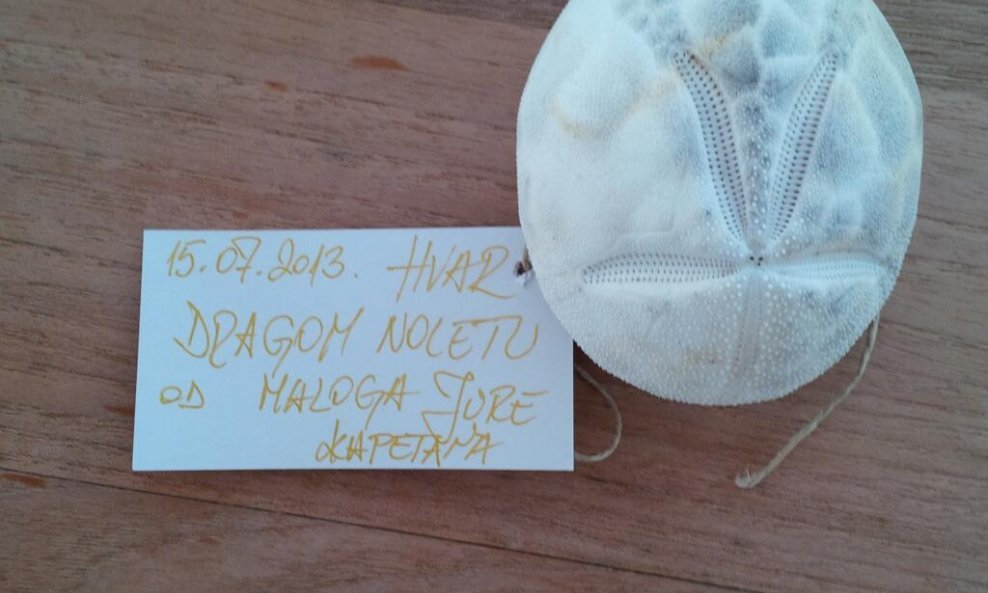 15.07.2013. HVAR
DRAGOM NOLETU
OD MALOGA JURE
KAPETANA